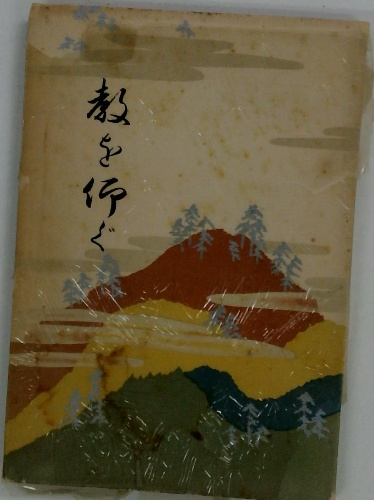 教を仰ぐ